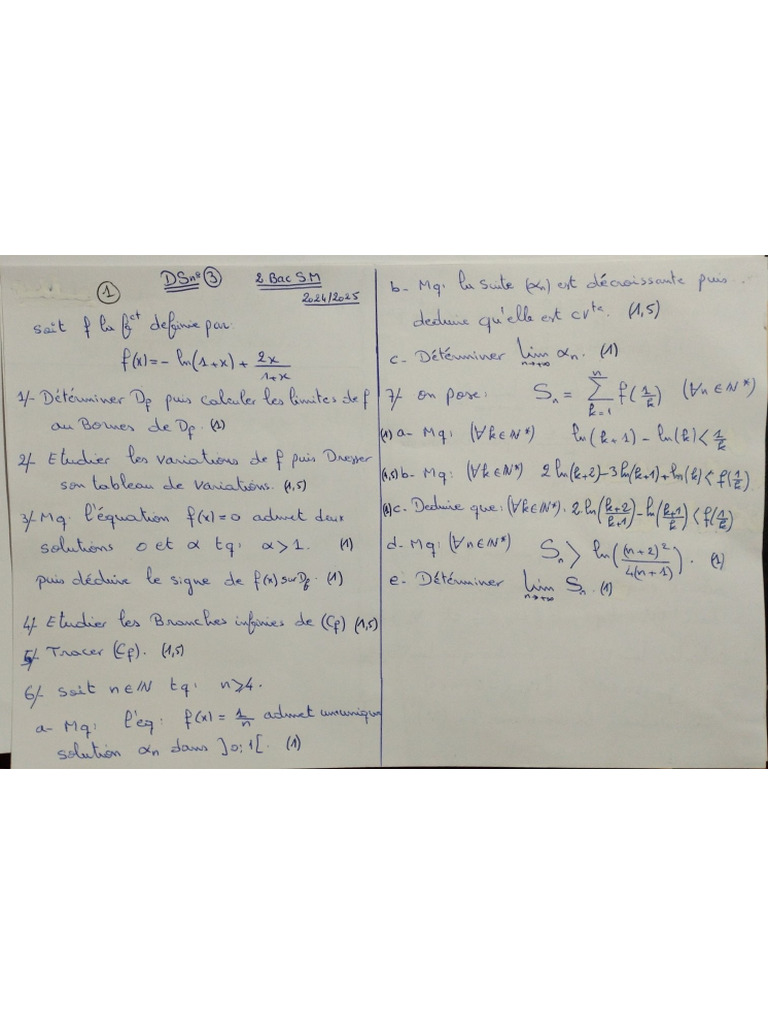 1
DS n° 3 2 Bac SM
2024/2025
soit f la fct definie par:
f(x) = - ln(1+x) + 2x/(1+x)
1/- Déterminer Df puis calculer les limites de f
au Bornes de Df. (1)
2/- Etudier les variations de f puis Dresser
son tableau de variations. (1,5)
3/- Mq. l'équation f(x)=0 admet deux
solutions 0 et α tq: α>1. (1)
puis déduire le signe de f(x) sur Df. (1)
4/- Etudier les Branches infinies de (Cf) (1,5)
5/- Tracer (Cf). (1,5)
6/- soit n∈ℕ tq: n⩾4.
a- Mq: l'éq: f(x) = 1/n admet une unique
solution αn dans ]0;1[. (1)
b- Mq: la suite (αn) est décroissante puis
deduire qu'elle est cvte. (1,5)
c- Déterminer lim n→+∞ αn. (1)
7/- on pose: Sn = Σ k=1 n f(1/k) (∀n∈ℕ*)
(1) a- Mq: (∀k∈ℕ*) ln(k+1) - ln(k) < 1/k
(1,5) b- Mq: (∀k∈ℕ*) 2ln(k+2)-3ln(k+1)+ln(k) < f(1/k)
c- Deduire que: (∀k∈ℕ*). 2ln((k+2)/(k+1)) - ln((k+1)/k) < f(1/k)
d- Mq: (∀n∈ℕ*) Sn > ln((n+2)²/(4(n+1))). (1)
e- Déterminer lim n→+∞ Sn. (1)